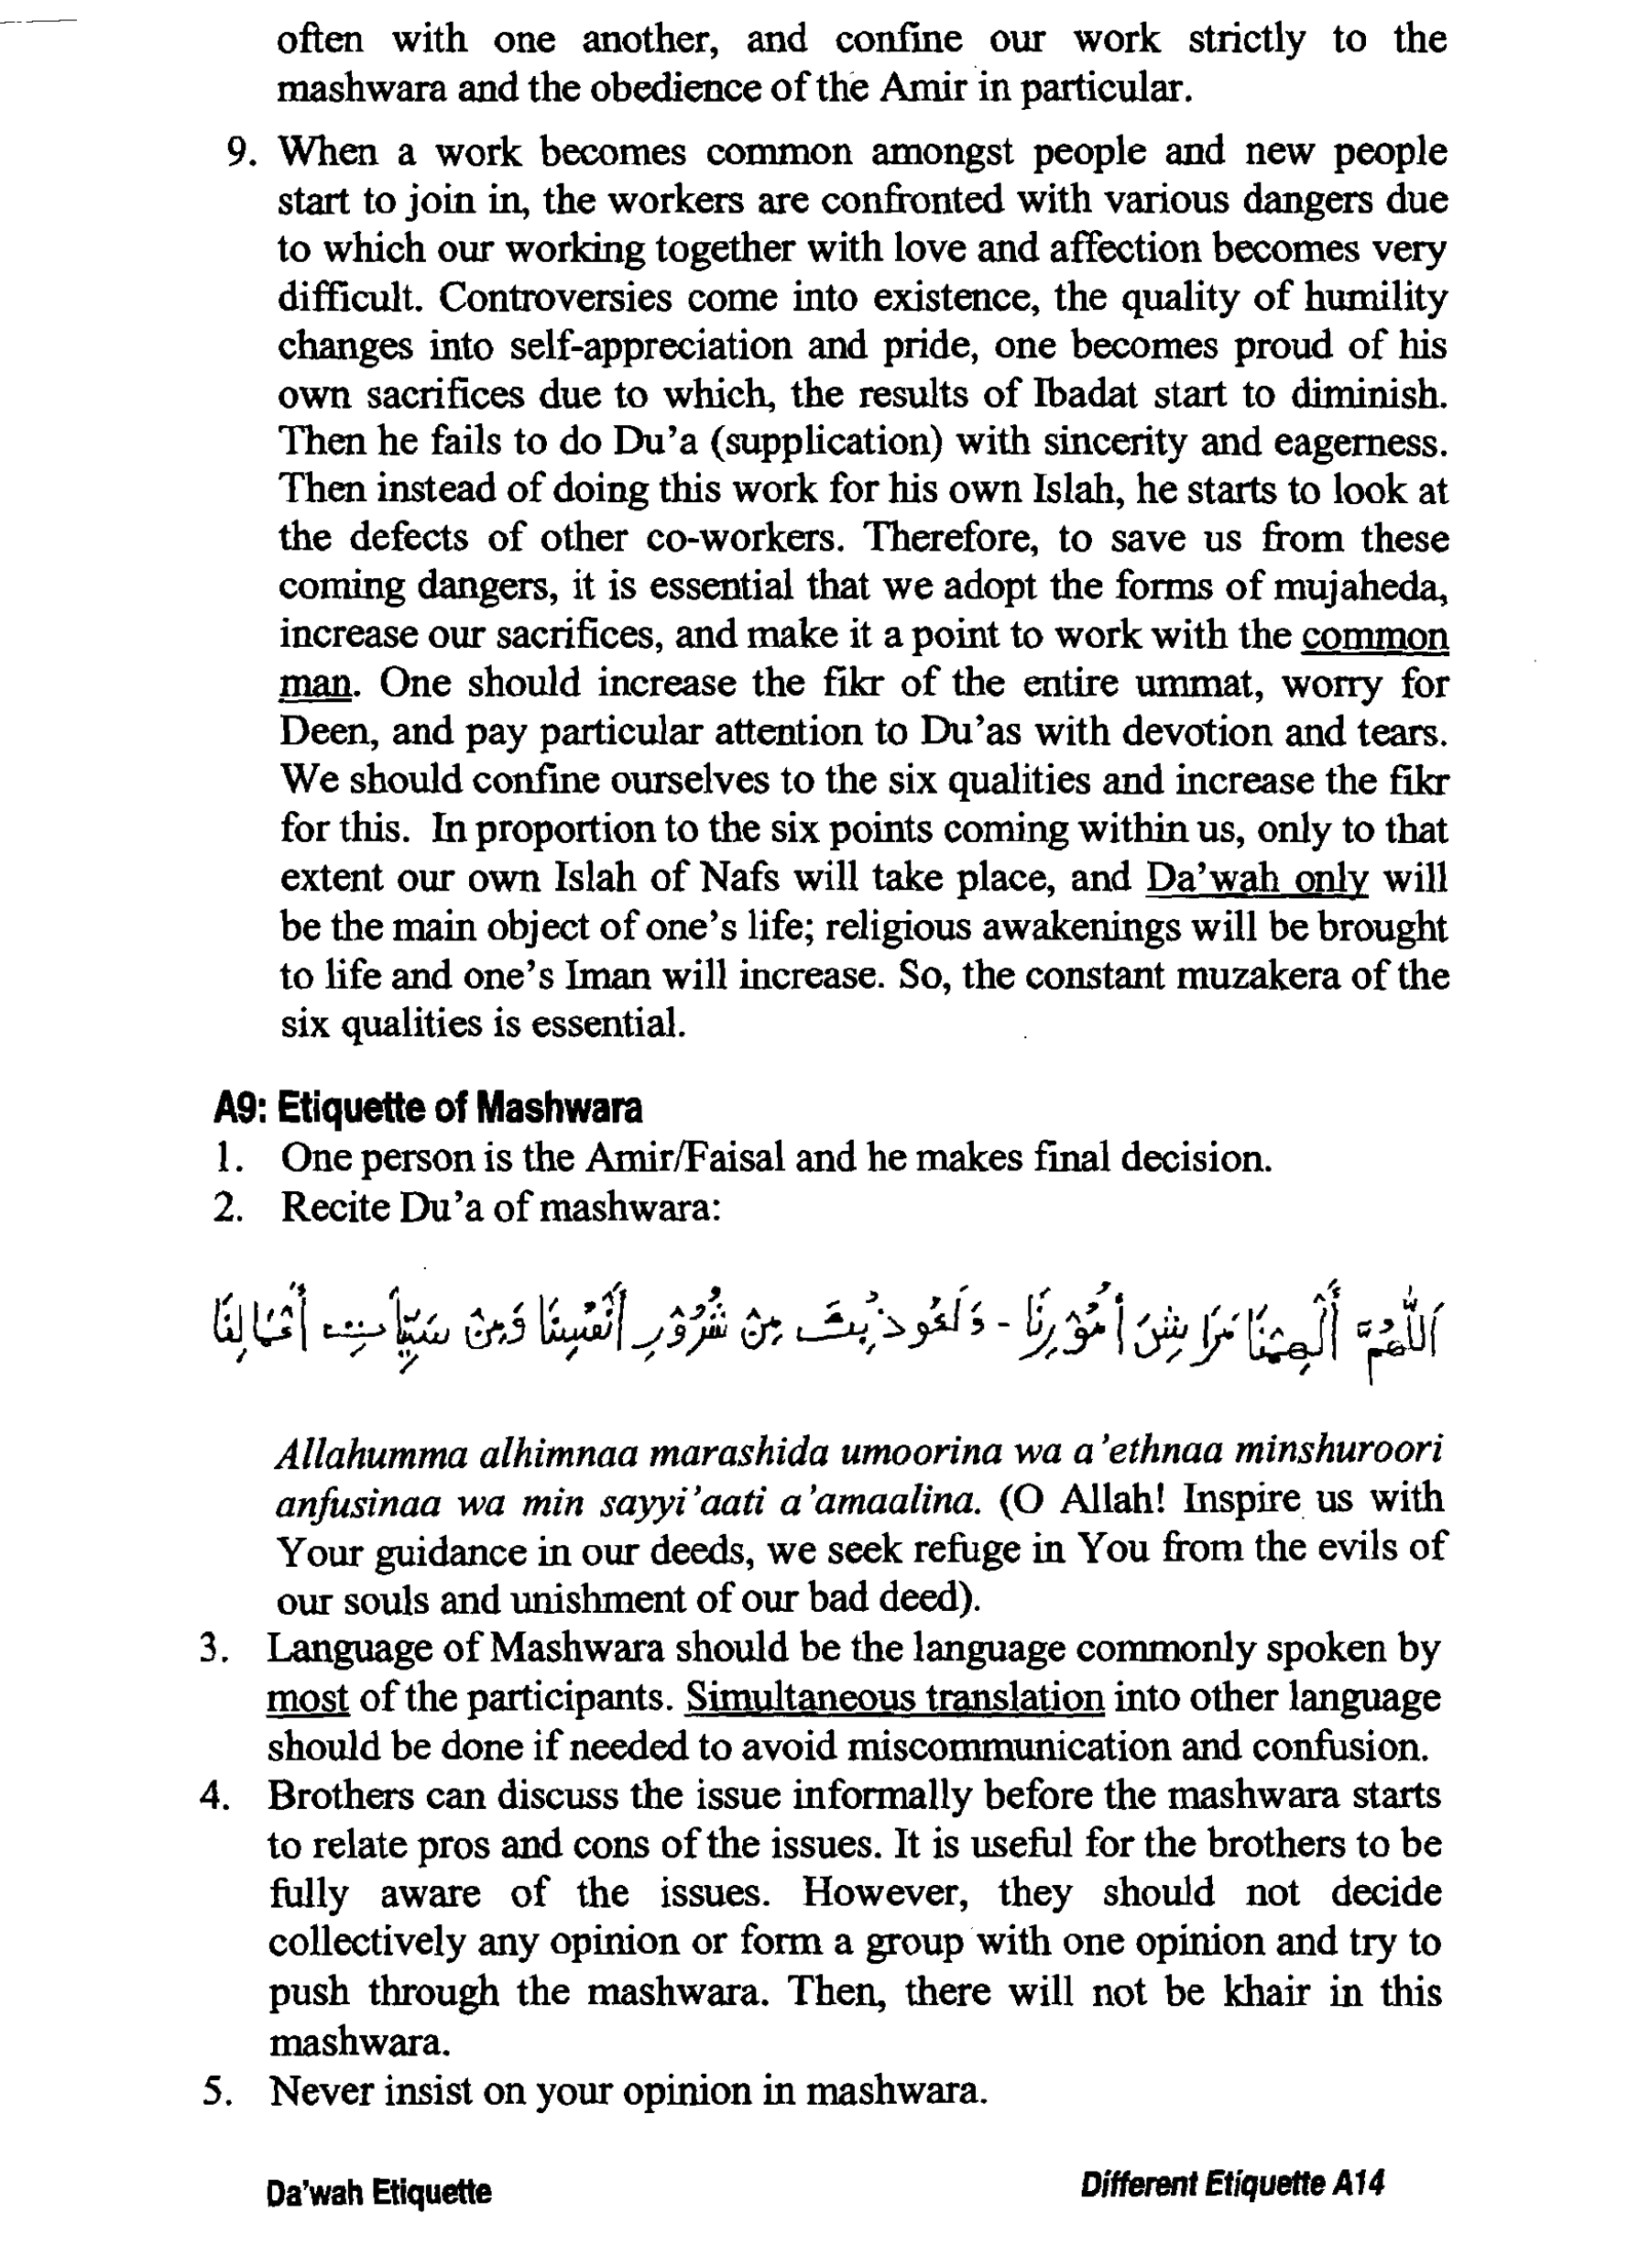 often with one another, and confine our work strictly to the
mashwara and the obedience of the Amir in particular.
9. When a work becomes common amongst people and new people
start to join in, the workers are confronted with various dangers due
to which our working together with love and affection becomes very
difficult. Controversies come into existence, the quality of humility
changes into self-appreciation and pride, one becomes proud of his
own sacrifices due to which, the results of Ibadat start to diminish.
Then he fails to do Du'a (supplication) with sincerity and eagerness.
Then instead of doing this work for his own Islah, he starts to look at
the defects of other co-workers. Therefore, to save us from these
coming dangers, it is essential that we adopt the forms of mujaheda,
increase our sacrifices, and make it a point to work with the common
man. One should increase the fikr of the entire ummat, worry for
Deen, and pay particular attention to Du'as with devotion and tears.
We should confine ourselves to the six qualities and increase the fikr
for this. In proportion to the six points coming within us, only to that
extent our own Islah of Nafs will take place, and Da'wah only will
be the main object of one's life; religious awakenings will be brought
to life and one's Iman will increase. So, the constant muzakera of the
six qualities is essential.
A9: Etiquette of Mashwara
1. One person is the Amir/Faisal and he makes final decision.
2. Recite Du'a of mashwara:
اَللّٰهُمَّ أَلْهِمْنَا مَرَاشِدَ أُمُوْرِنَا - وَنَعُوذُبِكَ مِنْ شُرُوْرِ أَنْفُسِنَا وَمِنْ سَيِّئَاتِ أَعْمَالِنَا
Allahumma alhimnaa marashida umoorina wa a'ethnaa minshuroori
anfusinaa wa min sayyi'aati a'amaalina. (O Allah! Inspire us with
Your guidance in our deeds, we seek refuge in You from the evils of
our souls and unishment of our bad deed).
3. Language of Mashwara should be the language commonly spoken by
most of the participants. Simultaneous translation into other language
should be done if needed to avoid miscommunication and confusion.
4. Brothers can discuss the issue informally before the mashwara starts
to relate pros and cons of the issues. It is useful for the brothers to be
fully aware of the issues. However, they should not decide
collectively any opinion or form a group with one opinion and try to
push through the mashwara. Then, there will not be khair in this
mashwara.
5. Never insist on your opinion in mashwara.
Da'wah Etiquette
Different Etiquette A14